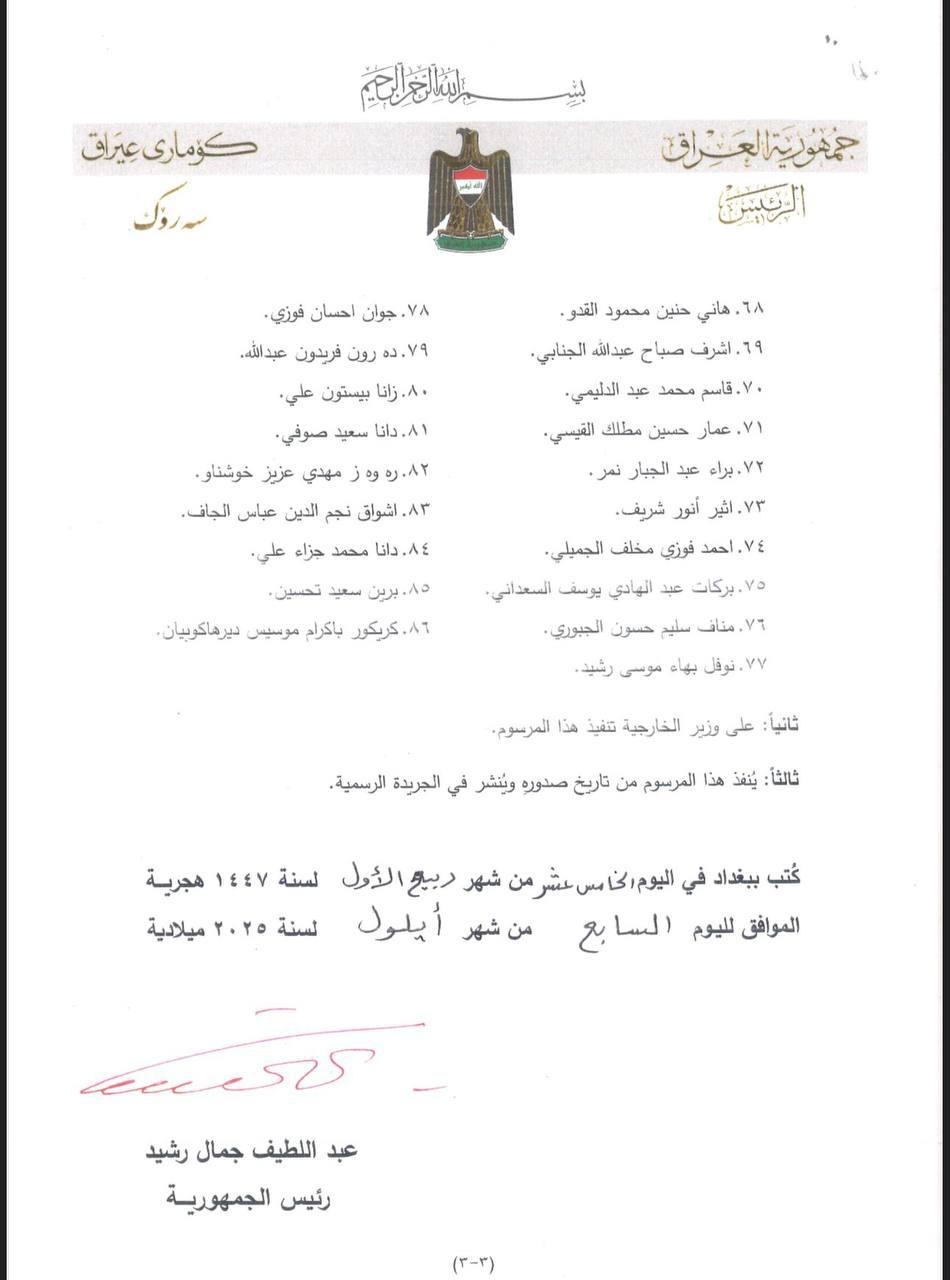 بسم الله الرحمن الرحيم
جمهورية العراق
كۆماری عێراق
الرئيس
سەرۆك
الله أكبر
جمهورية العراق
٦٨. هاني حنين محمود القدو.
٦٩. اشرف صباح عبدالله الجنابي.
٧٠. قاسم محمد عبد الدليمي.
٧١. عمار حسين مطلك القيسي.
٧٢. براء عبد الجبار نمر.
٧٣. اثير أنور شريف.
٧٤. احمد فوزي مخلف الجميلي.
٧٥. بركات عبد الهادي يوسف السعداني.
٧٦. مناف سليم حسون الجبوري.
٧٧. نوفل بهاء موسى رشيد.
٧٨. جوان احسان فوزي.
٧٩. ده رون فريدون عبدالله.
٨٠. زانا بيستون علي.
٨١. دانا سعيد صوفي.
٨٢. ره وه ز مهدي عزيز خوشناو.
٨٣. اشواق نجم الدين عباس الجاف.
٨٤. دانا محمد جزاء علي.
٨٥. برين سعيد تحسين.
٨٦. كريكور باكرام موسيس ديرهاكوبيان.
ثانياً: على وزير الخارجية تنفيذ هذا المرسوم.
ثالثاً: يُنفذ هذا المرسوم من تاريخ صدورهِ ويُنشر في الجريدة الرسمية.
كُتب ببغداد في اليوم الخامس عشر من شهر ربيع الأول لسنة ١٤٤٧ هجريـة
الموافق لليوم السابع من شهر أيلول لسنة ٢٠٢٥ ميلادية
عبد اللطيف جمال رشيد
رئيس الجمهوريـة
(٣-٣)